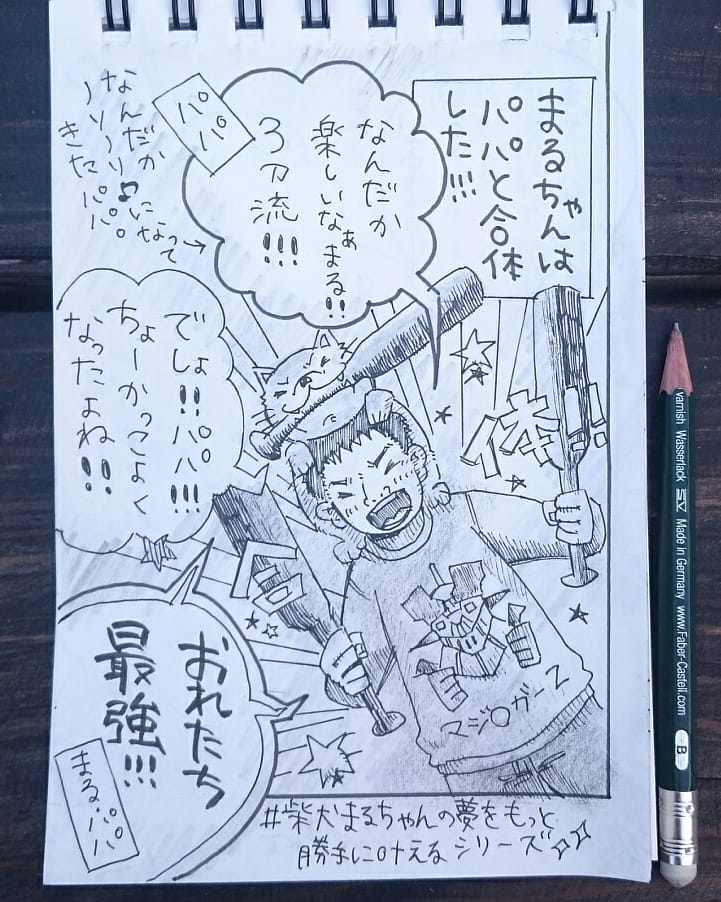 まるちゃんは
パパと合体
した!!!
なんだか
楽しいなぁまる!!
3刀流!!!
パパ
なんだか
ノリノリ♪に
きた
なって→
パパ。
でしょ!!パパ!!!
ちょーかっこよく
なったよね!!
おれたち
最強!!!
まる・パパ
マジ〇ガーZ
#柴犬まるちゃんの夢をもっと
勝手に叶えるシリーズ
varnish Wasserlack SV Made in Germany www.Faber-Castell.com
B